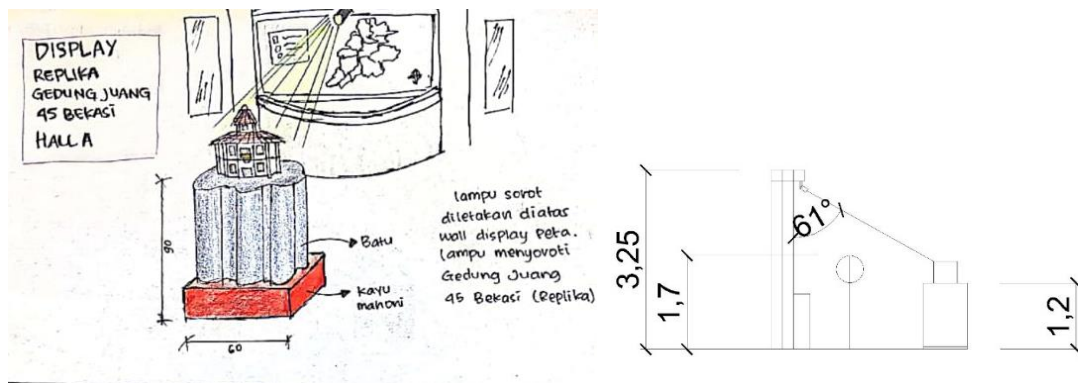 DISPLAY
REPLIKA
GEDUNG JUANG
45 BEKASI
HALL A
90
60
Batu
kayu
mahoni
lampu sorot
diletakan diatas
wall display Peta.
lampu menyoroti
Gedung Juang
45 Bekasi (Replika)
3,25
1,7
61°
1,2